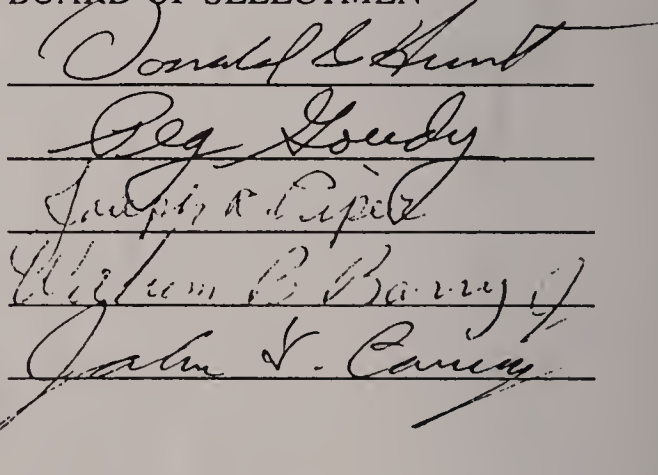 BOARD OF SELECTMEN
Donald G Hunt
Peg Goudy
Joseph R. Piper
William B Barry Jr
John V.